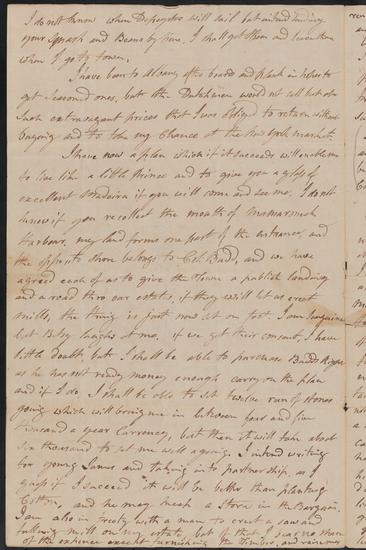 I do not know when Depeyster will sail but intend sending
your Squash and Beans by him. I shall get them and leave them
when I go to town.
I have been to Albany after boards and plank in hopes to
get seasoned ones, but the Dutchmen would not sell but at
such extravagant prices that I was obliged to return without
buying and to take my chance at the New York market.
I have now a plan which if it succeeds will enable me
to live like a little Prince and to give you a glass of
excellent Madaira if you will come and see me. I do not
know if you recollect the mouth of Mamaroneck
Harbour, my land forms one part of the entrance, and
the opposite shore belongs to Col. Budd, and we have
agreed each of us to give the Town a publick landing
and a road thro our estates, if they will let us erect
mills, the thing is just now set on foot. I am sanguine
but Betsy laughs at me. if we get their consent, I have
little doubt, but I shall be able to purchase Budds Right
as he has not ready money enough carry on the plan
and if I do, I shall be able to set twelve run of stones
going which will bring me in between four and five
thousand a year Currency, but then it will take about
six thousand to set me well agoing. I intend writing
for young and taking into partnership, as I
guess if I succeed it will be better than planting
Cotton, and he may keep a Store in the Bargain.
I am also in treaty with a man to erect a saw and
fulling mill on my estate, but of that I
of the expence except furnishing the Timber, and